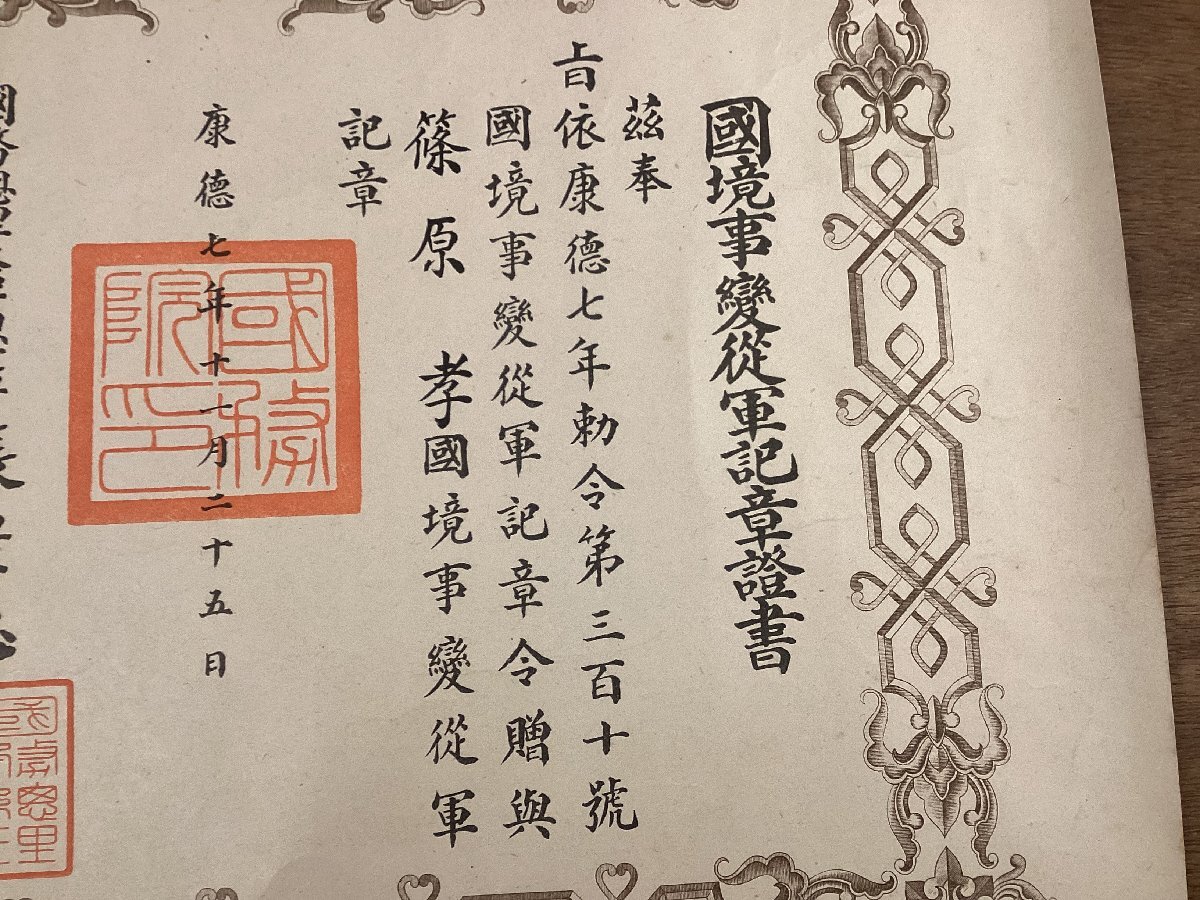 國境事變從軍記章證書
茲奉
上旨依康德七年勅令第三百十號
國境事變從軍記章令贈與
篠原孝國境事變從軍
記章
康德七年十一月二十五日
國務院印
國務總理大臣